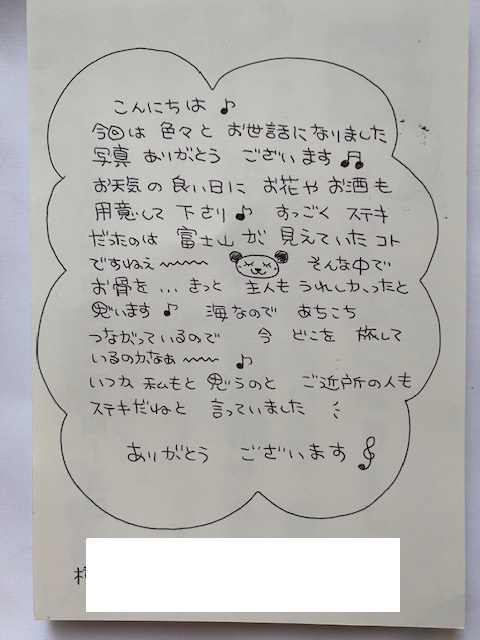 こんにちは♪
今回は 色々と お世話になりました
写真 ありがとう ございます♬
お天気の良い日に お花や お酒も
用意して下さり♪ すっごく ステキ
だったのは 富士山が 見えていたコト
ですねぇ〜〜〜 そんな中で
お骨を… きっと 主人も うれしかったと
思います♪ 海なので あちこち
つながっているので 今 どこを 旅して
いるのかなぁ〜〜〜♪
いつか 私もと 思うのと ご近所の人も
ステキだねと 言っていました
ありがとう ございます